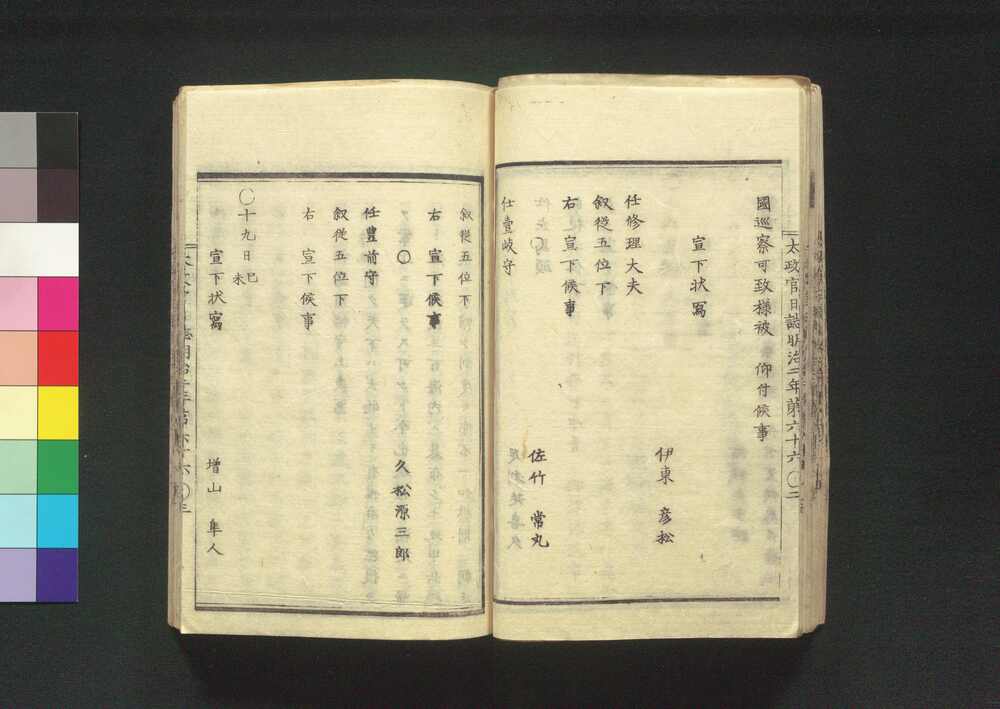 太政官日誌明治二年第六十六 〇二
國巡察可致樣被 仰付候事
宣下狀寫
伊東 彦松
任修理大夫
敍從五位下
右 宣下候事
〇
佐竹 常丸
任壹岐守
敍從五位下
右 宣下候事
〇
久松源三郎
任豊前守
敍從五位下
右 宣下候事
〇十九日己未
宣下狀寫
增山 隼人